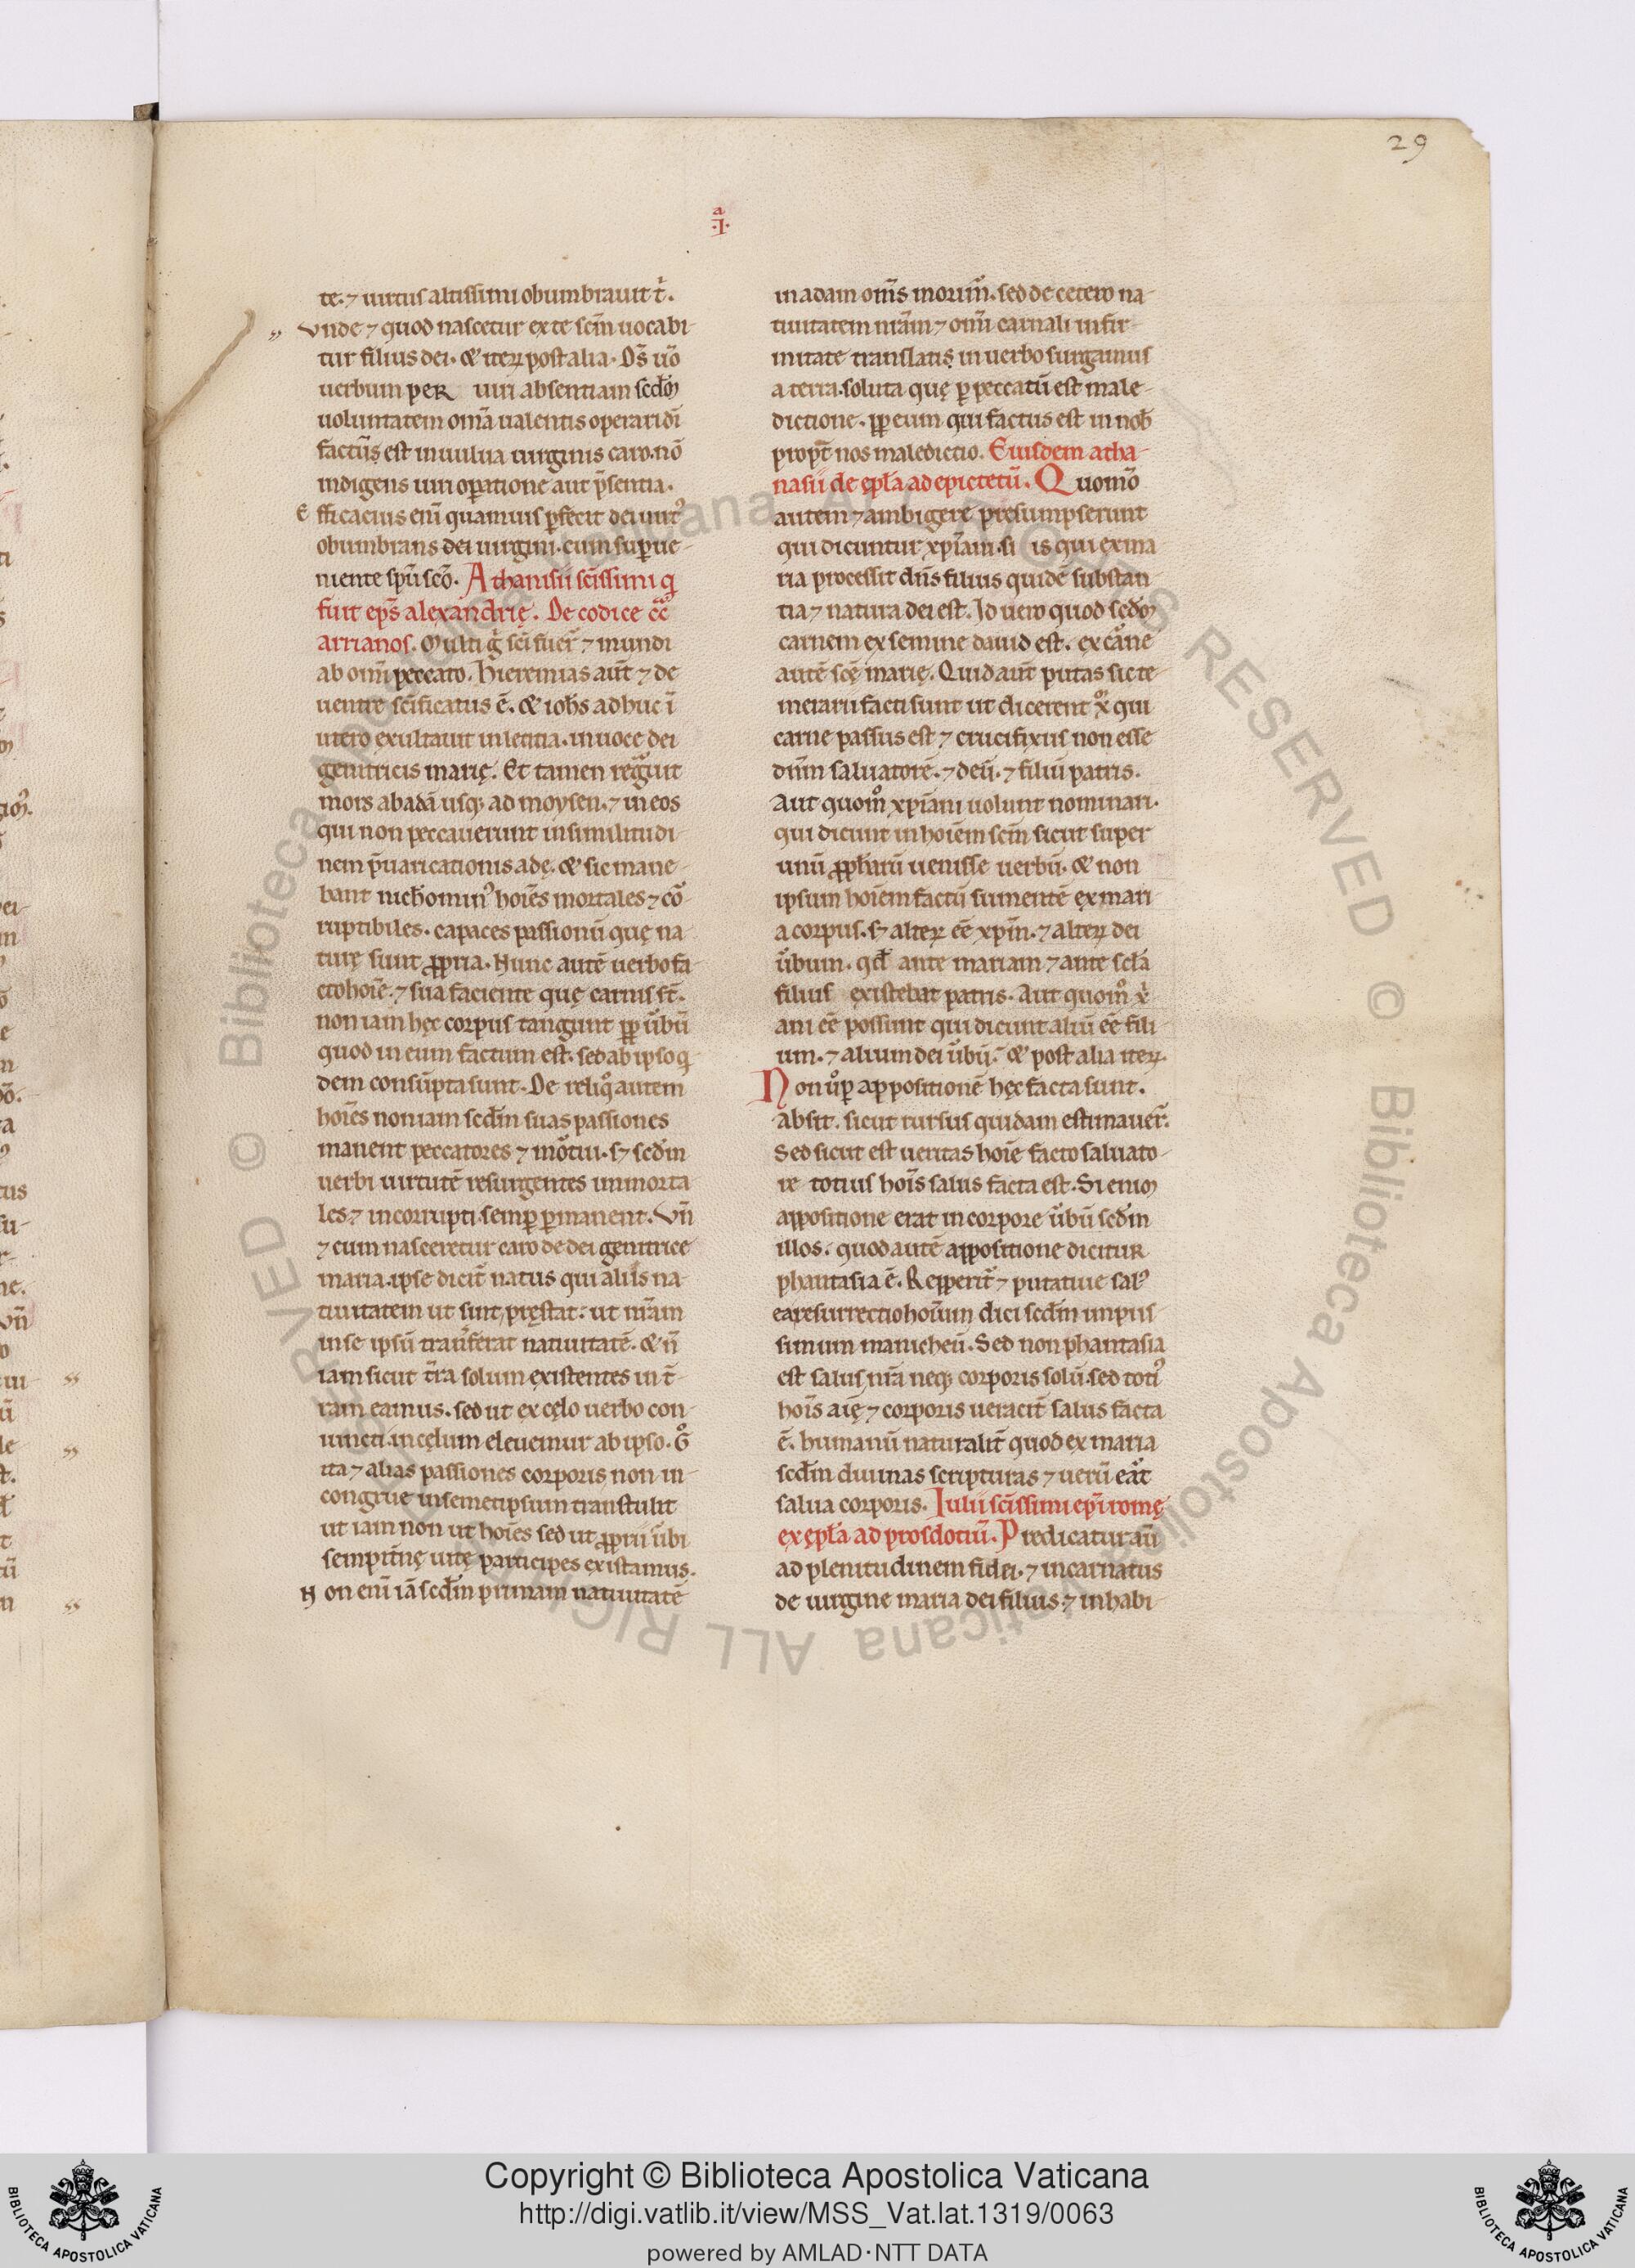 29
a
·I·
te· ⁊ uirtus altissimi obumbrauit t̄·
„ Vnde ⁊ quod nascetur ex te sc̄m uocabi-
tur filius dei· & iterꝝ post alia· Ds̄ uō
uerbum per uiri absentiam scd̄m
uoluntatem om̄a ualentis operari dī
factus̄ est in uulua uirginis caro· nō
indigens uiri oꝑatione aut p̄sentia·
E fficacius enī quamuis ꝑfecit dei uirtꝰ
obumbrans dei uirgini· cum suꝑue-
niente spū scō· Athanisii sc̄issimi q̄
fuit ep̄s alexandrię· De codice cc̄
arrianos· Multi ḡ sc̄i fuer̄ ⁊ mundi
ab om̄i peccato· hieremias aut̄ ⁊ de
uentre sc̄ificatus ē· & ioh̄s adhuc ī
utero exultauit in letitia· in uoce dei
genitricis marię· Et tamen regͣuit
mors ab adā usq; ad moysen· ⁊ in eos
qui non peccauerunt in similitudi-
nem p̄uaricationis adę· & sic mane-
bant nich̄ominꝰ hoīes mortales ⁊ cō-
ruptibiles· capaces passionū quę na-
turę sunt ꝓpria· Nunc autē uerbo fa-
cto hoīe· ⁊ sua faciente quę carnis st̄·
non iam hęc corpus tangunt ꝓp̄ ūbū
quod in eum factum est· sed ab ipso q̄-
dem consūpta sunt· De reliqͦ autem
hoīes non iam scd̄m suas passiones
manent peccatores ⁊ moͬtui· s; scd̄m
uerbi uirtutē resurgentes immorta
les ⁊ incorrupti semꝑ ꝑmanent· Vn̄
⁊ cum nasceretur caro de dei genitrice
maria· ipse dicit̄ natus qui aliis na-
tiuitatem ut sint pręstat· ut nr̄am
in se ipsū tranſferat natiuitatē· & n̄
iam sicut t̄ra solum existentes in t̄-
ram eamus· sed ut ex cęlo uerbo con-
iuncti· in cęlum eleuemur ab ipso· Gͦ
ita ⁊ alias passiones corporis non in-
congrue in semetipsum transtulit
ut iam non ut hoīes sed ut ꝓprii ūbi
sempit̄nę uitę participes existamus·
N on enī iā scd̄m primam natiuitatē
in adam om̄s morimͬ· sed de cetero na-
tiuitatem nr̄am ⁊ om̄i carnali infir-
mitate translatis in uerbo surgamus
a terra· soluta quę ꝑ peccatū est male-
dictione· ꝓp̄ eum qui factus est in nob̄
propt̄ nos maledictio· Eiusdem atha-
nasii de epl̄a ad epictetū· Quomō
autem ⁊ ambigere presumpserunt
qui dicuntur xp̄iani· si is qui ex ma
ria processit dn̄s filius quidē substan
tia ⁊ natura dei est· Id uero quod scd̄m
carnem ex semine dauid est· ex carͦne
autē scę̄ marię· Quid aut̄ putas sic te-
merarii facti sunt ut dicerent x̄ qui
carne passus est ⁊ crucifixus non esse
dn̄m saluatorē· ⁊ deū· ⁊ filiū patris·
Aut quomͦ xp̄iani uolunt nominari·
qui dicunt in hoīem sc̄m sicut super
unū ꝓph̄arū uenisse uerbū· & non
ipsum hoīem factū sumentē ex mari
a corpus· s; alterꝝ ēē xp̄m· ⁊ alterꝝ dei
ūbum· qd̄ ante mariam ⁊ ante scl̄a
filius existebat patris· Aut quomͦ xͥ
ani ēē possunt qui dicunt aliū ēē fili-
um· ⁊ alium dei ūbū· & post alia iterꝝ·
Non uͦ ꝑ appositionē hęc facta sunt·
absit· sicut rursus quidam estimauer̄·
Sed sicut est ueritas hoīe facto saluato-
re totius hoīs salus facta est· Si enim
appositione erat in corpore ūbū scd̄m
illos· quod autē appositione dicitur
phantasia ē· Repperit̄ ⁊ putatiue salꝰ
ea resurrectio hoīum dici scd̄m impiis-
simum manicheū· Sed non phantasia
est salus nr̄a neq; corporis solū· sed totiꝰ
hoīs aīę ⁊ corporis ueracit̄ salus facta
ē· humanū naturalit̄ quod ex maria
scd̄m diuinas scripturas ⁊ uerū eͣat
salua corporis· Iulii sc̄issimi ep̄i romę
ex epl̄a ad prosdociū· Predicatur aū
ad plenitudinem fidei· ⁊ incarnatus
de uirgine maria dei filius· ⁊ inhabi-
Copyright © Biblioteca Apostolica Vaticana
http://digi.vatlib.it/view/MSS_Vat.lat.1319/0063
powered by AMLAD·NTT DATA
BIBLIOTECA APOSTOLICA VATICANA
BIBLIOTECA APOSTOLICA VATICANA